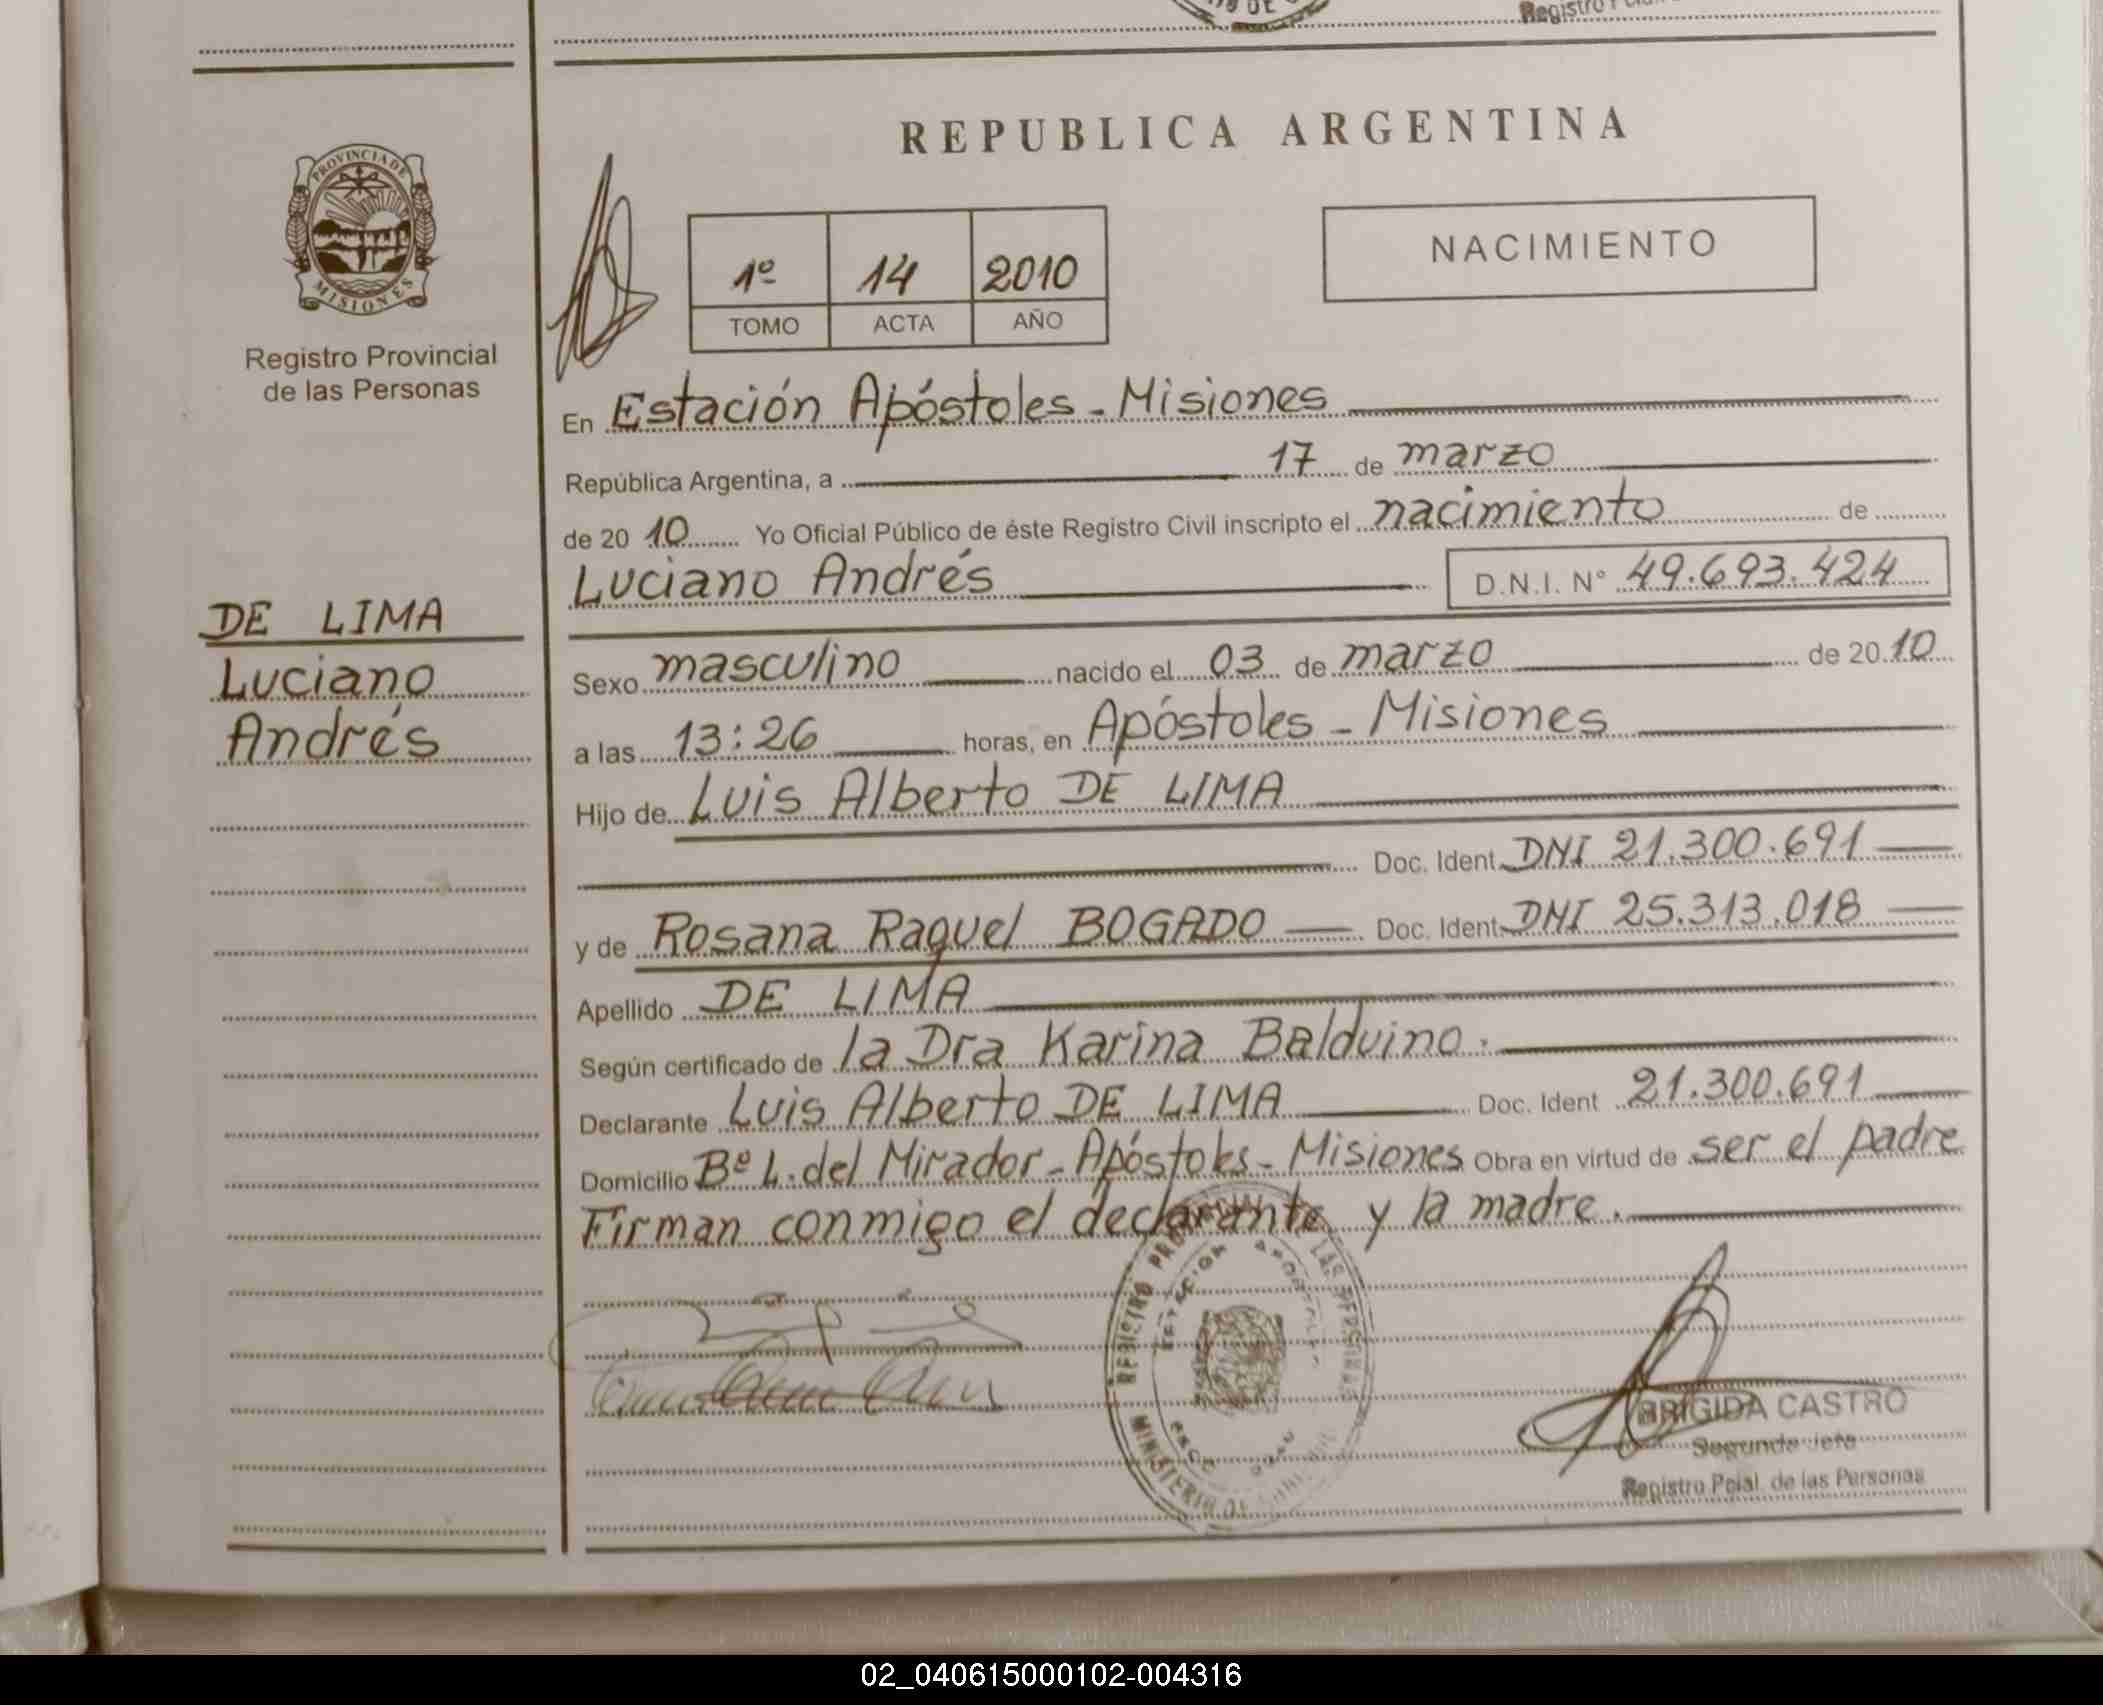 Registro
PROVINCIA DE
MISIONES
Registro Provincial
de las Personas
DE LIMA
Luciano
Andrés
REPUBLICA ARGENTINA
1º 14 2010
TOMO ACTA AÑO
NACIMIENTO
En Estación Apóstoles - Misiones
República Argentina, a 17 de marzo
de 20 10 Yo Oficial Público de éste Registro Civil inscripto el nacimiento de
Luciano Andrés D.N.I. N° 49.693.424
Sexo masculino nacido el 03 de marzo de 20 10
a las 13:26 horas, en Apóstoles - Misiones
Hijo de Luis Alberto DE LIMA
Doc. Ident. DNI 21.300.691
y de Rosana Raquel BOGADO Doc. Ident. DNI 25.313.018
Apellido DE LIMA
Según certificado de la Dra Karina Balduino.
Declarante Luis Alberto DE LIMA Doc. Ident 21.300.691
Domicilio Bº L. del Mirador - Apóstoles - Misiones Obra en virtud de ser el padre
Firman conmigo el declarante y la madre.
REGISTRO LAS PERSONAS
MINISTERIO DE
BRIGIDA CASTRO
Segundo Jefe
Registro Pcial. de las Personas
02_040615000102-004316